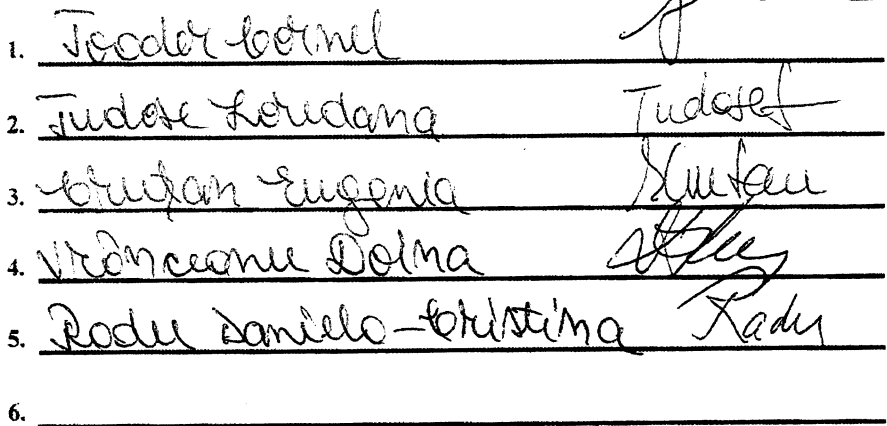 1. Teodor Cornel
2. Tudose Loredana Tudose
3. Eugenia
4. Vrânceanu Doina
5. Radu Daniela-Cristina Radu
6.